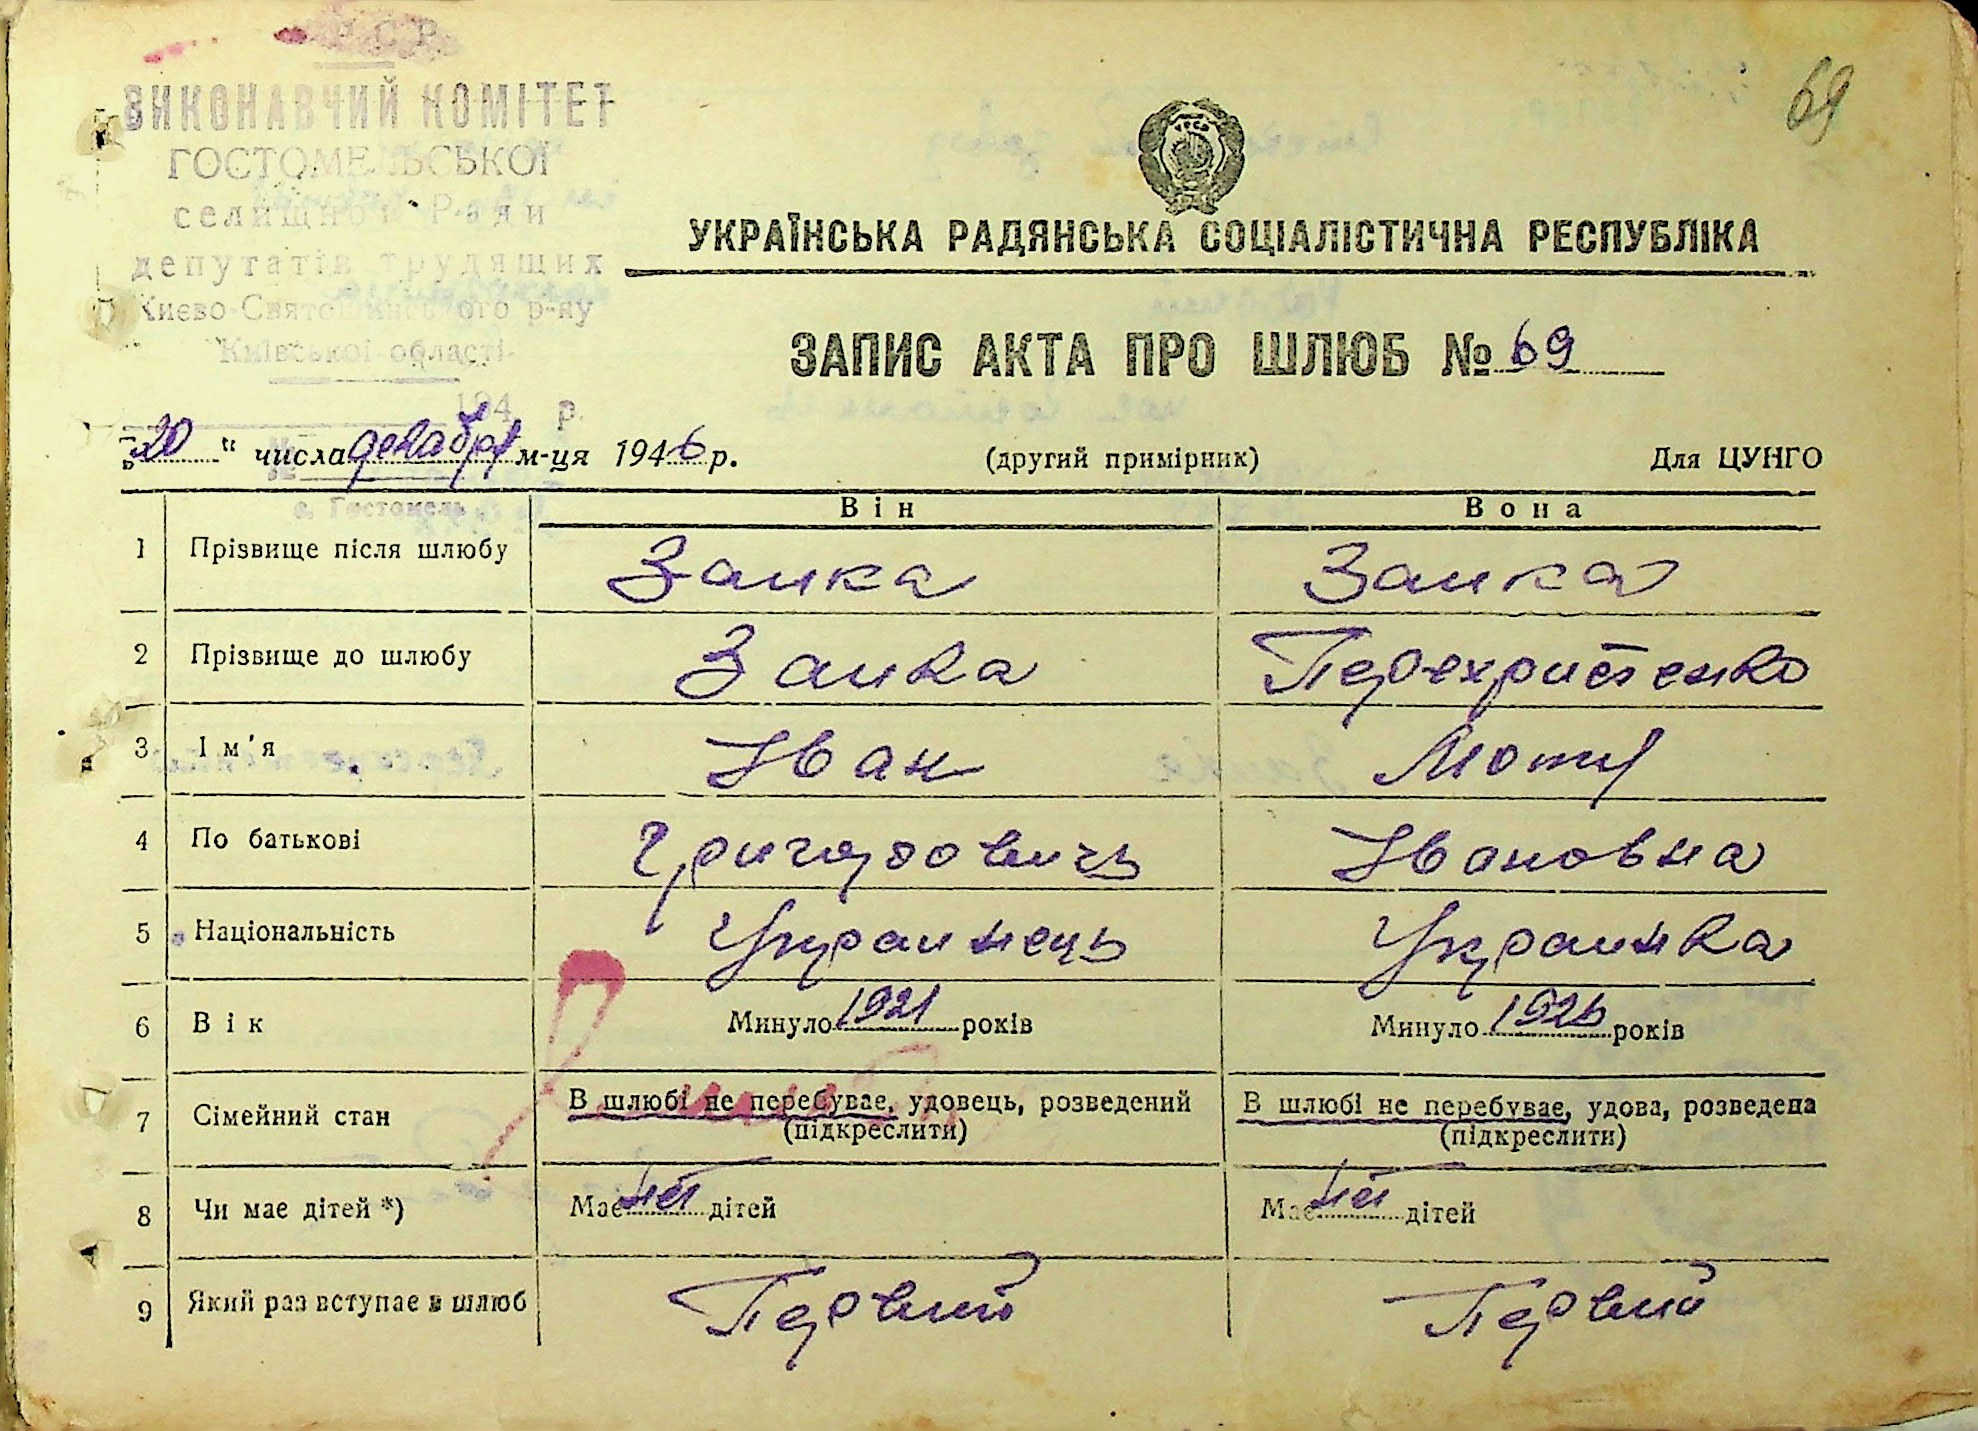 69
УСР
ВИКОНАВЧИЙ КОМІТЕТ
ГОСТОМЕЛЬСЬКОЇ
селищної Ради
депутатів трудящих
Києво-Святошинського р-ну
Київської області
194 р.
№
с. Гостомель
УКРАЇНСЬКА РАДЯНСЬКА СОЦІАЛІСТИЧНА РЕСПУБЛІКА
ЗАПИС АКТА ПРО ШЛЮБ № 69
„20“ числа декабря м-ця 1946 р. (другий примірник) Для ЦУНГО
Він Вона
1 Прізвище після шлюбу Заика Заика
2 Прізвище до шлюбу Заика Перехристенко
3 Ім'я Иван Мотя
4 По батькові Григоровичь Ивановна
5 Національність Украинець Украинка
6 Вік Минуло 1921 років Минуло 1926 років
7 Сімейний стан В шлюбі не перебуває, удовець, розведений В шлюбі не перебуває, удова, розведена
(підкреслити) (підкреслити)
8 Чи має дітей *) Має нет дітей Має нет дітей
9 Який раз вступає в шлюб Первий Первий